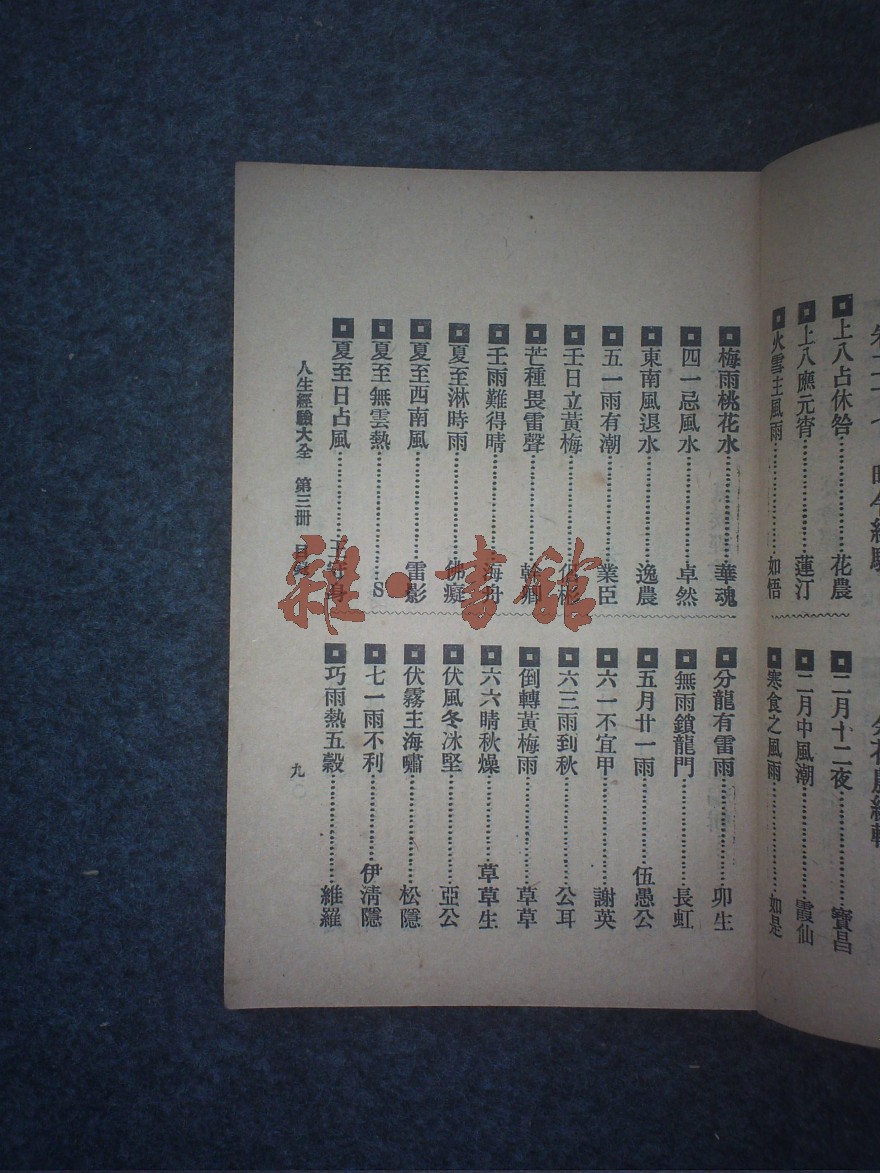 上八占休咎……花農
上八應元宵……蓮汀
火雪主風雨……如悟
二月十二夜……寶昌
二月中風潮……霞仙
寒食之風雨……如是
梅雨桃花水……華魂
四一忌風水……卓然
東南風退水……逸農
五一雨有潮……業臣
壬日立黃梅……侶彬
芒種畏雷聲……幹卿
壬雨難得晴……海舟
夏至淋時雨……佛癡
夏至西南風……雷影
夏至無雲熱……S
夏至日占風……王守身
分龍有雷雨……卯生
無雨鎖龍門……長虹
五月廿一雨……伍愚公
六一不宜甲……謝英
六三雨到秋……公耳
倒轉黃梅雨……草草
六六晴秋燥……草草生
伏風冬冰堅……亞公
伏霧主海嘯……松隱
七一雨不利……伊清隱
巧雨熱五穀……維羅
人生經驗大全 第三冊 目錄
九
雜·書館